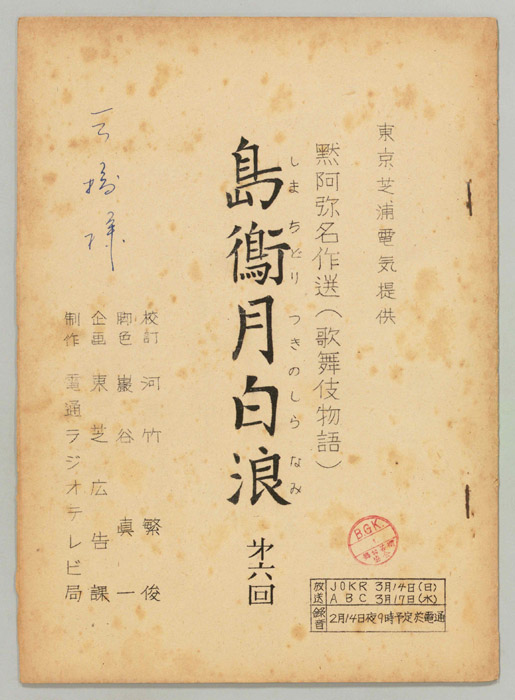 東京芝浦電気提供
黙阿弥名作選(歌舞伎物語)
島鵆月白浪
しまちどりつきのしらなみ
第六回
校訂 河竹繁俊
脚色 巌谷真一
企画 東芝広告課
制作 電通ラジオテレビ局
B.G.K.
放送 JOKR 3月14日(日)
ABC 3月17日(水)
録音 2月14日夜9時予定於電通